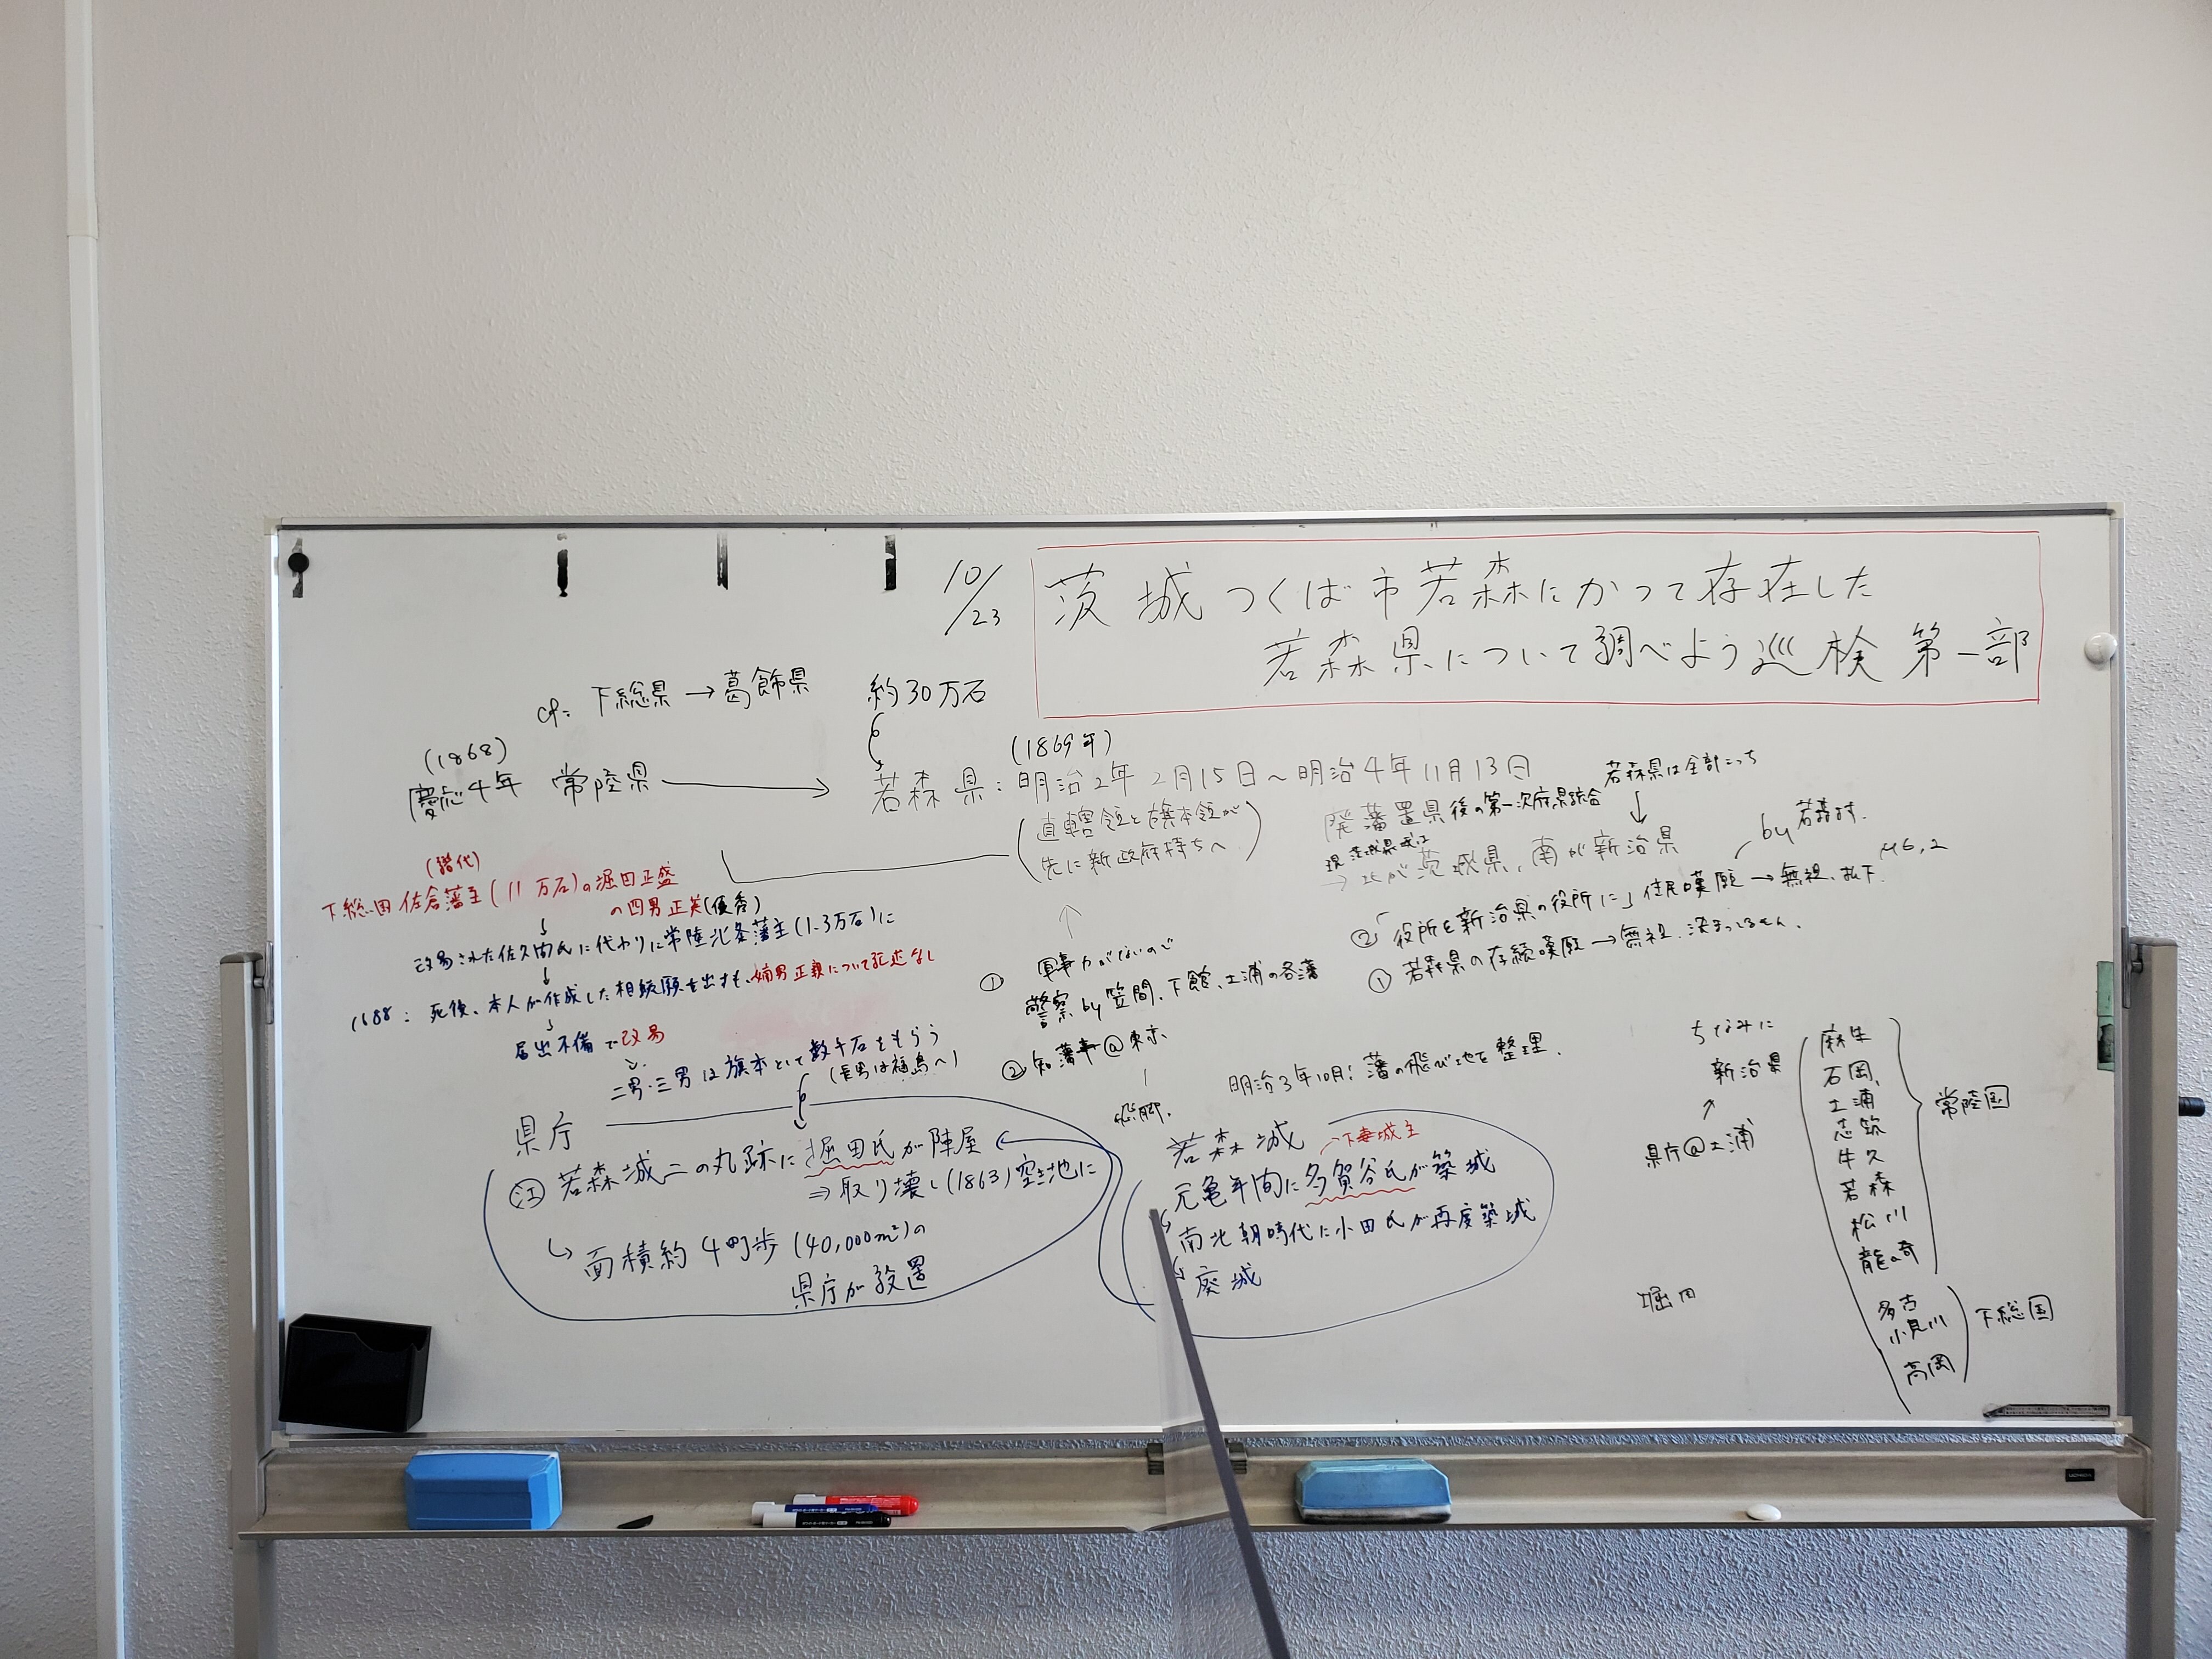 10/23
茨城つくば市若森にかつて存在した
若森県について調べよう巡検 第一部
cf: 下総県→葛飾県
約30万石
(1868)
慶応4年 常陸県
(1869年)
若森県:明治2年2月15日~明治4年11月13日
(直轄領と旗本領が
先に新政府持ちへ)
若森県は全部こっち
廃藩置県後の第一次府県統合
現茨城県域は
→北が茨城県、南が新治県
(譜代)
下総国佐倉藩主(11万石)の堀田正盛
の四男正英(優秀)
改易された佐久間氏に代わりに常陸北条藩主(1.3万石)に
1688: 死後、本人が作成した相続願を出すも、嫡男正親について記述なし
届出不備で改易
二男・三男は旗本として数千石をもらう
(長男は福島へ)
① 軍事力がないので
警察by笠間、下館、土浦の各藩
②知藩事@東京
飛脚.
by 若森村.
M6,2
②「役所を新治県の役所に」住民嘆願→無視、払下.
①若森県の存続嘆願→無視.決まってるもん.
明治3年10月:藩の飛び地を整理.
県庁
㊟ 若森城二の丸跡に堀田氏が陣屋
⇒取り壊し(1863)空き地に
↳面積約4町歩(40,000m²)の
県庁が設置
若森城
下妻城主
元亀年間に多賀谷氏が築城
南北朝時代に小田氏が再度築城
廃城
ちなみに
新治県
県庁@土浦
堀田
麻生
石岡、
土浦
志筑
牛久
若森
松川
龍ヶ崎
常陸国
多古
小見川
高岡
下総国